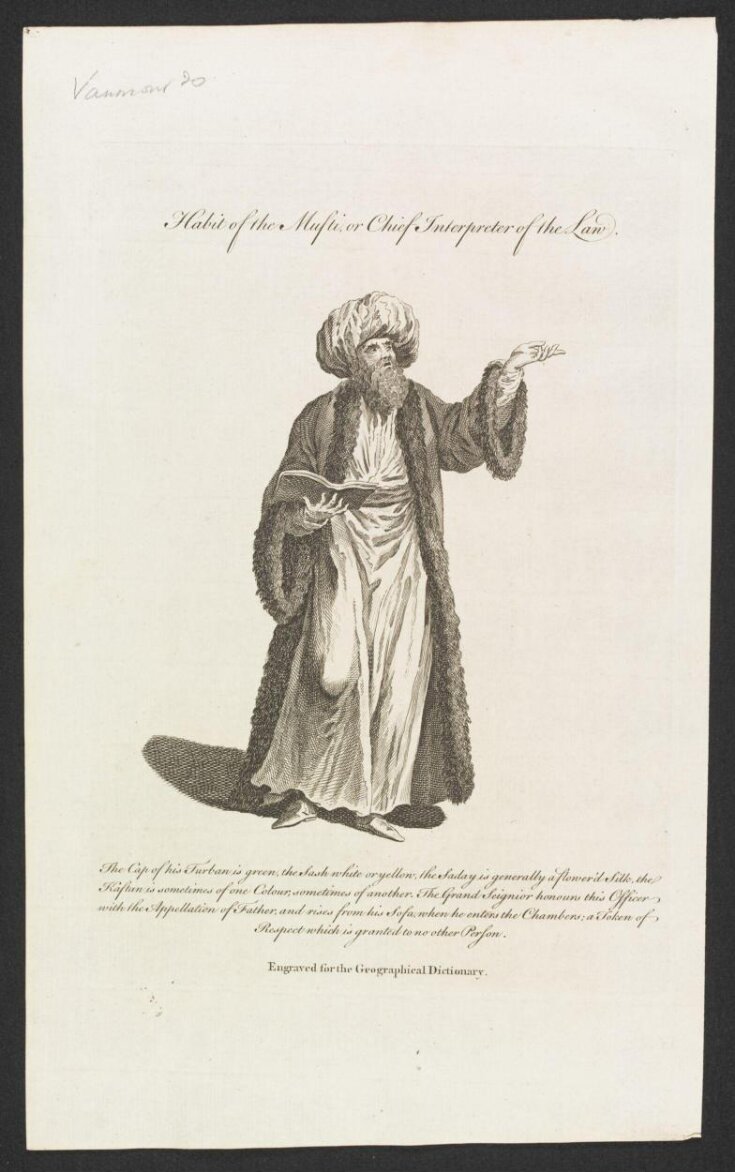 Vanmour
Habit of the Mufti, or Chief Interpreter of the Law.
The Cap of his Turban is green, the Sash white or yellow, the Saday is generally a flower'd Silk, the
Kaftan is sometimes of one Colour, sometimes of another. The Grand Seignior honours this Officer
with the Appellation of Father, and rises from his Sofa, when he enters the Chambers; a Token of
Respect which is granted to no other Person.
Engraved for the Geographical Dictionary.